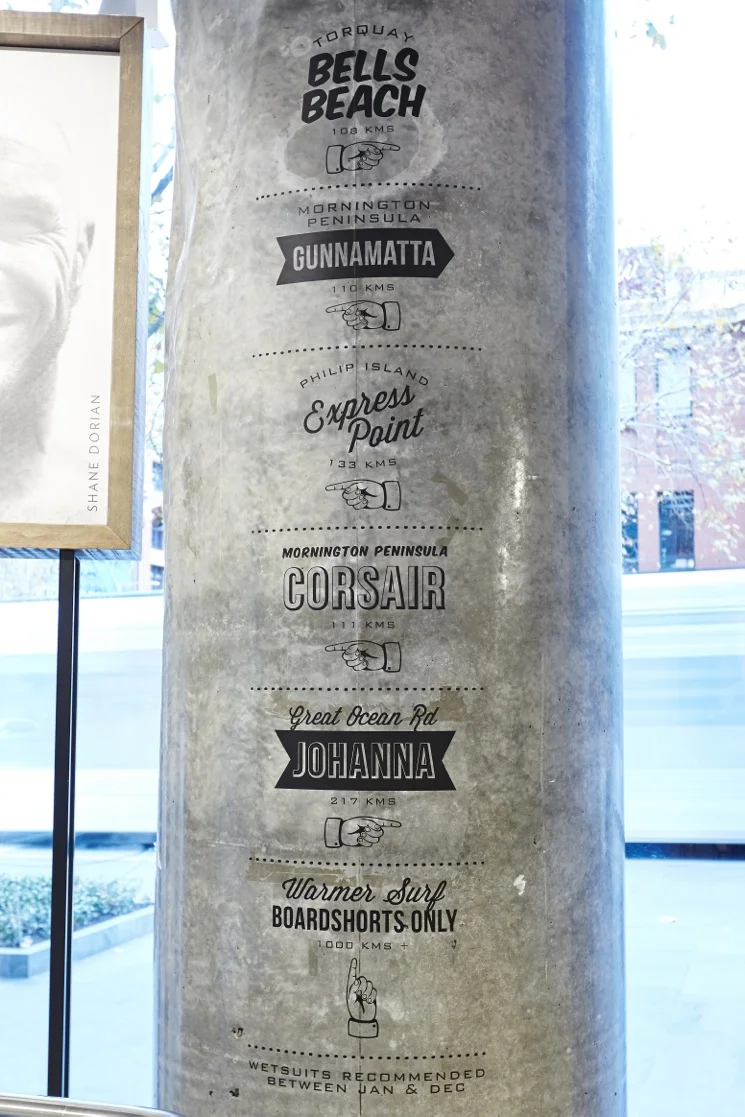 TORQUAY
BELLS
BEACH
108 KMS
MORNINGTON
PENINSULA
GUNNAMATTA
110 KMS
PHILIP ISLAND
Express
Point
133 KMS
MORNINGTON PENINSULA
CORSAIR
111 KMS
Great Ocean Rd
JOHANNA
217 KMS
Warmer Surf
BOARDSHORTS ONLY
1000 KMS +
WETSUITS RECOMMENDED
BETWEEN JAN & DEC
SHANE DORIAN